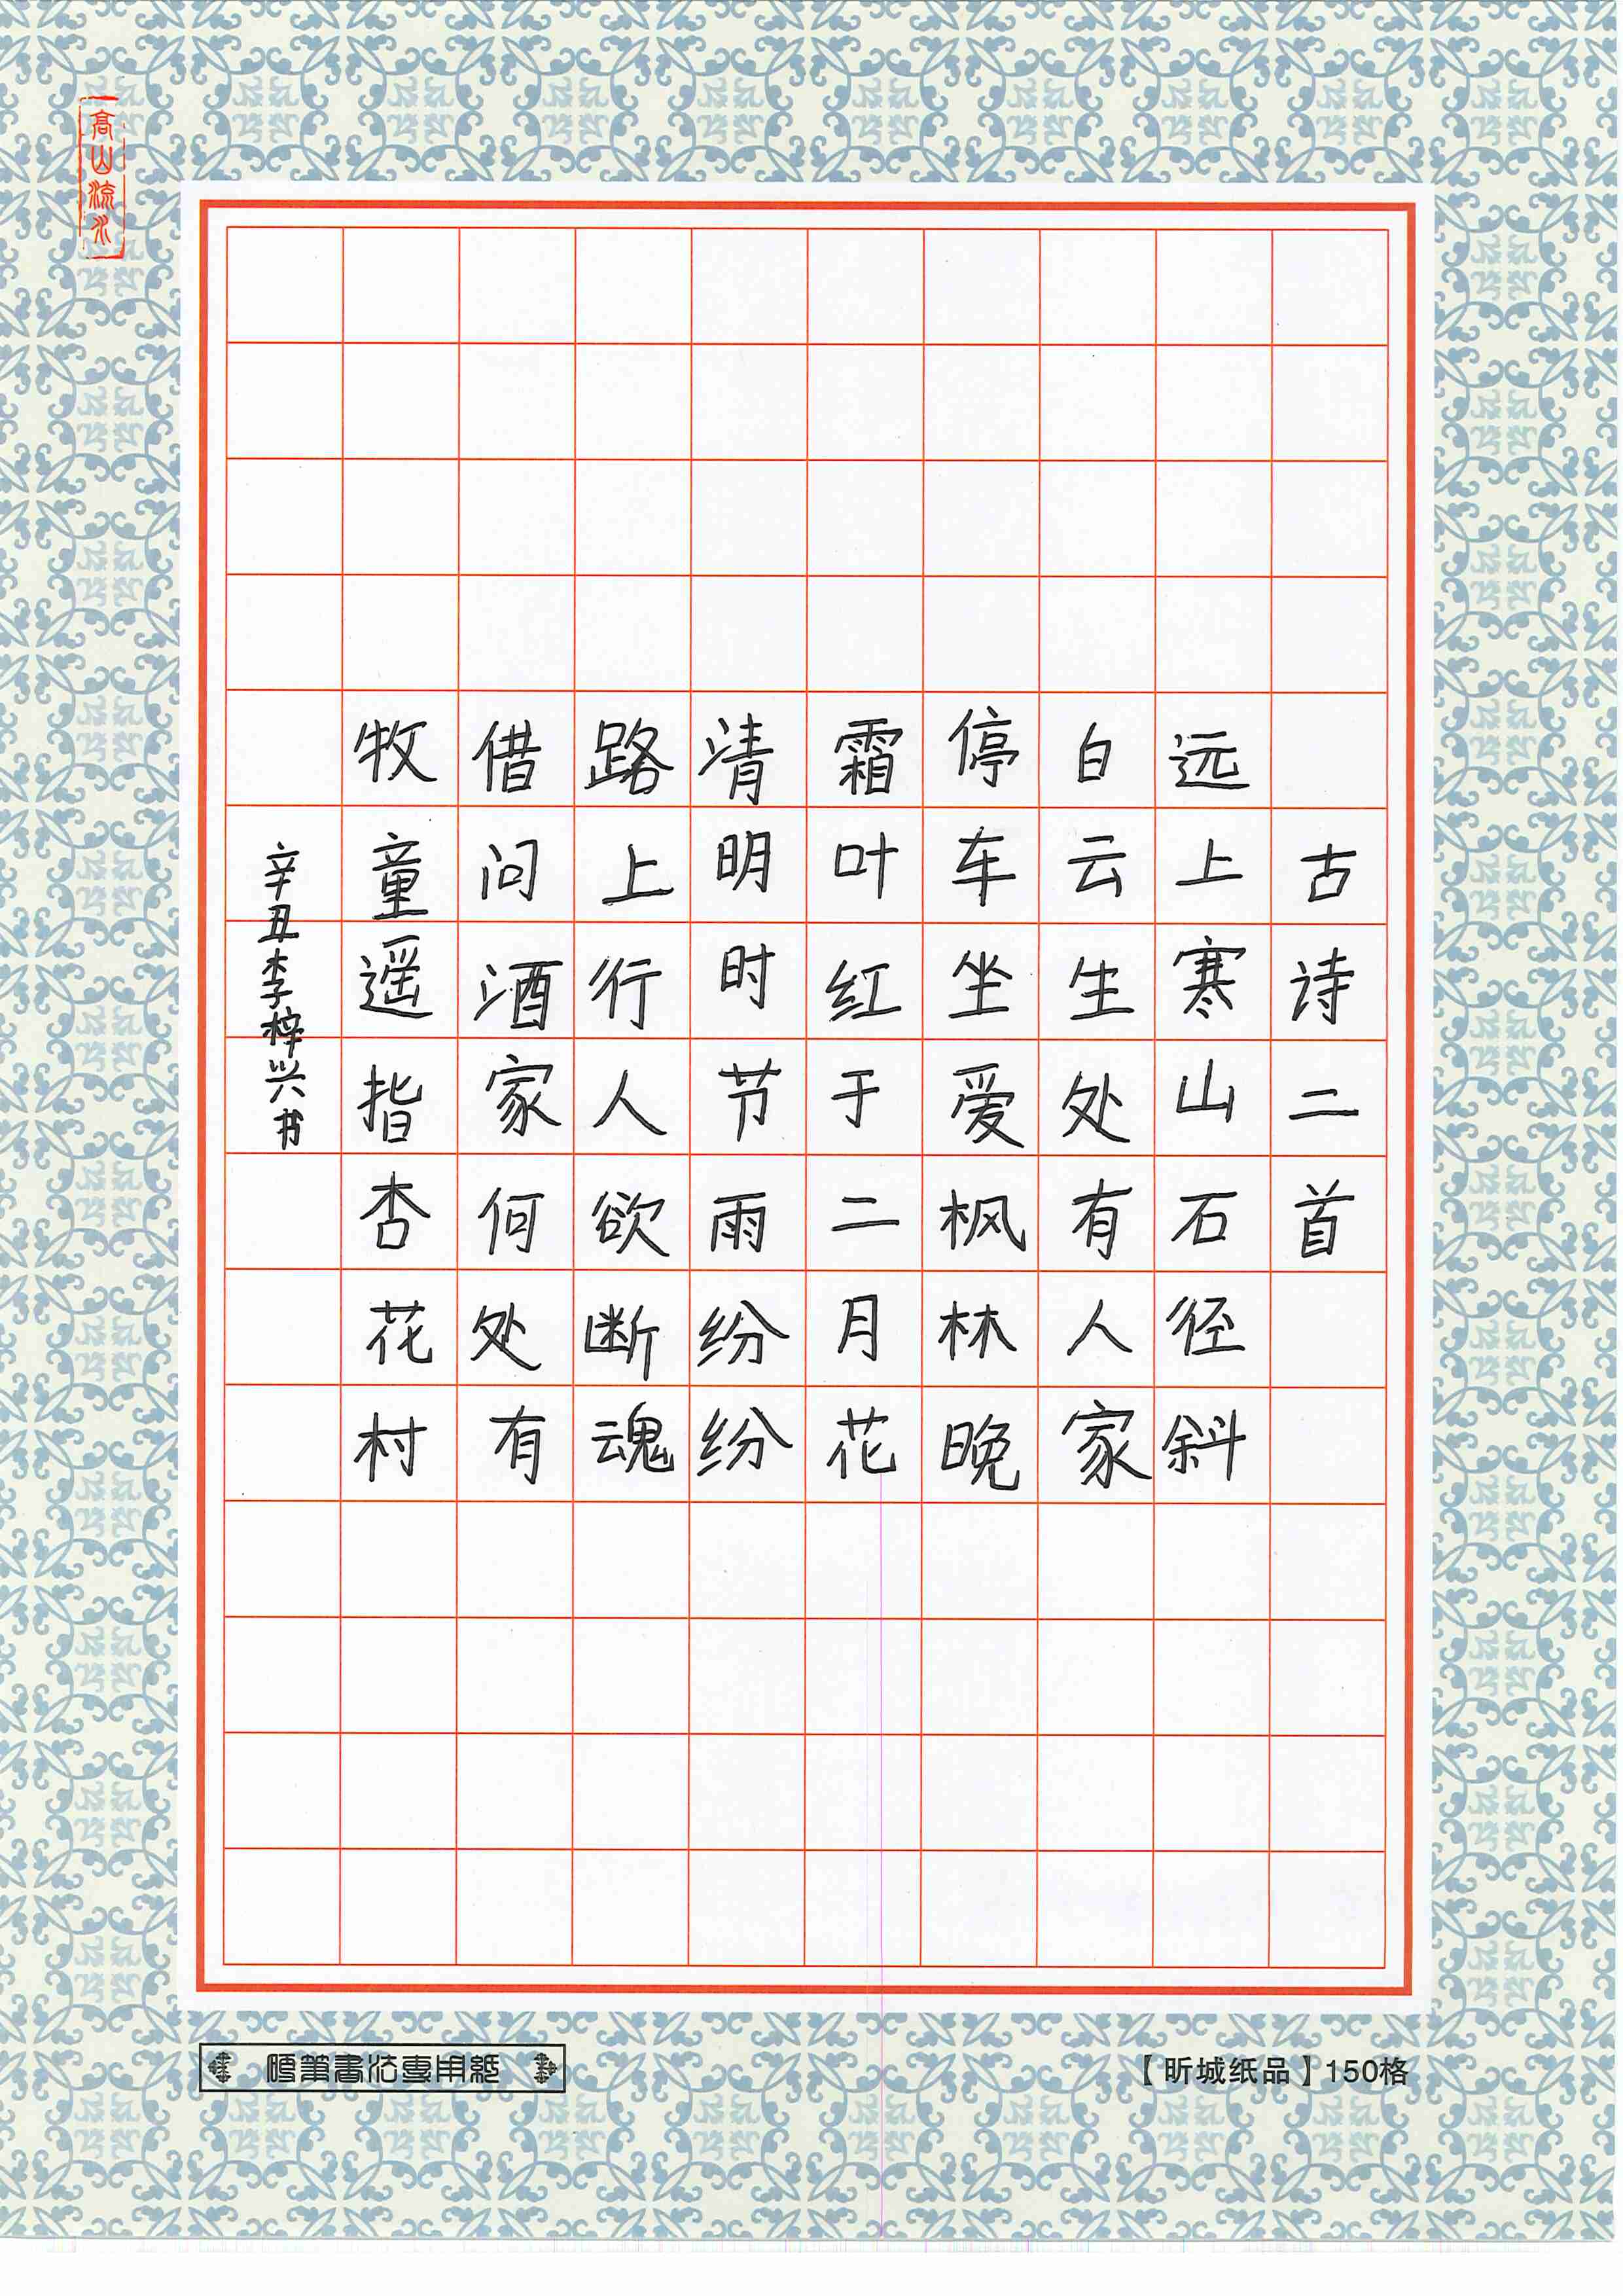 高山流水
古诗二首
远上寒山石径斜
白云生处有人家
停车坐爱枫林晚
霜叶红于二月花
清明时节雨纷纷
路上行人欲断魂
借问酒家何处有
牧童遥指杏花村
辛丑李梓兴书
硬筆書法專用紙
【昕城纸品】150格